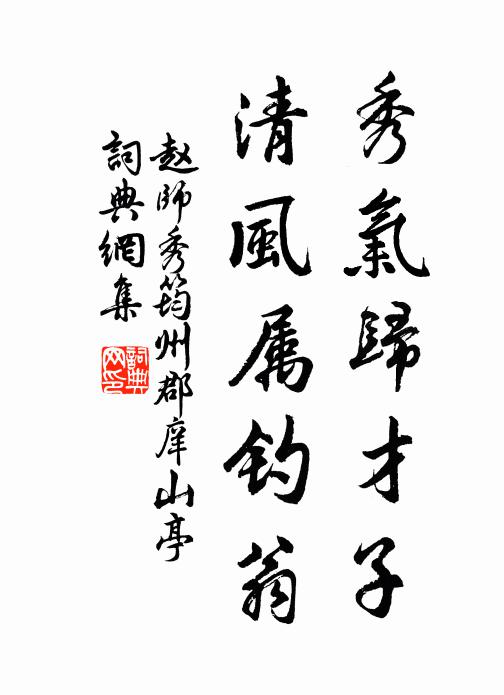 秀氣歸才子
清風属钓翁
赵師秀筠州郡庠山亭
詞典網集
詞典网印